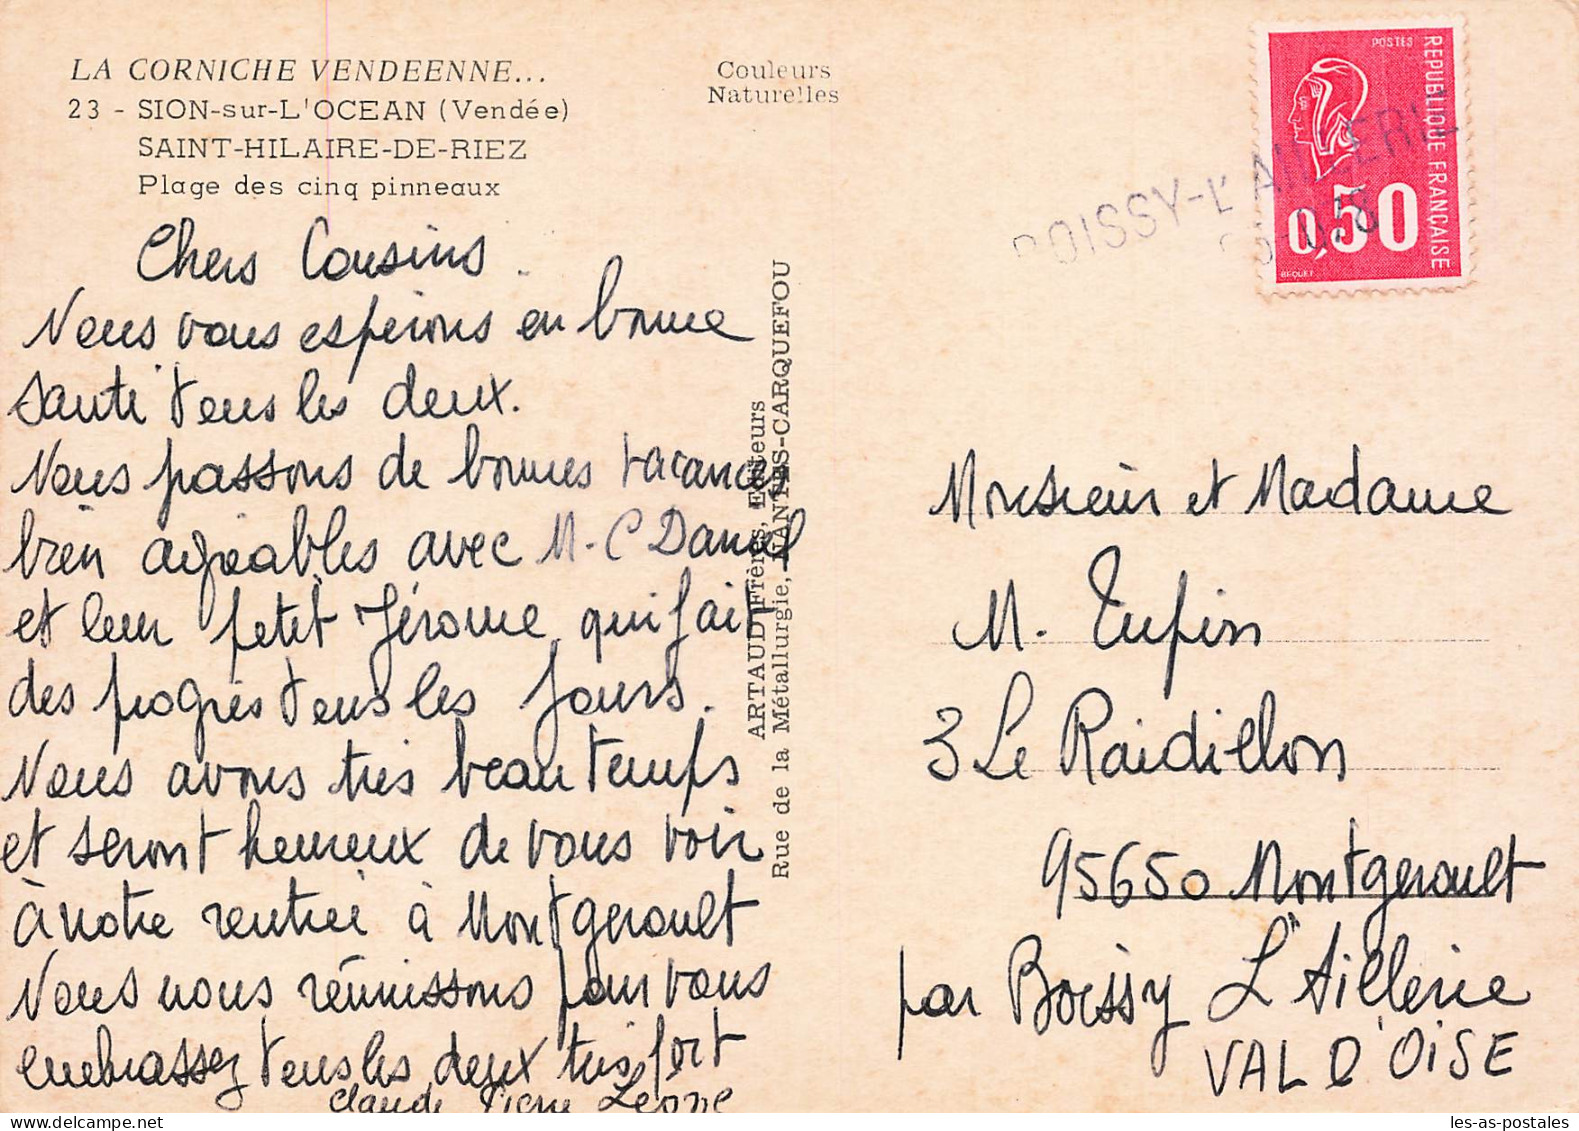 LA CORNICHE VENDEENNE...
23 - SION-sur-L'OCEAN (Vendée)
SAINT-HILAIRE-DE-RIEZ
Plage des cinq pinneaux
Couleurs
Naturelles
Chers Cousins.
Nous vous espérons en bonne
santé tous les deux.
Nous passons de bonnes vacances
bien agréables avec M. C Daniel
et leur petit Jérome qui fait
des progrès tous les jours.
Nous avons très beau temps
et seront heureux de vous voir
à notre rentrée à Montgeroult
Nous nous réunissons pour vous
embrassez tous les deux très fort
Claude Pierre Léone
ARTAUD Frères, Editeurs
Rue de la Métallurgie, NANTES-CARQUEFOU
POSTES
REPUBLIQUE FRANÇAISE
0,50
BEQUET
BOISSY-L'AILLERIE
Monsieur et Madame
M. Tupin
3 Le Raidillon
95650 Montgeroult
par Boissy L'Aillerie
VAL D'OISE
les-as-postales